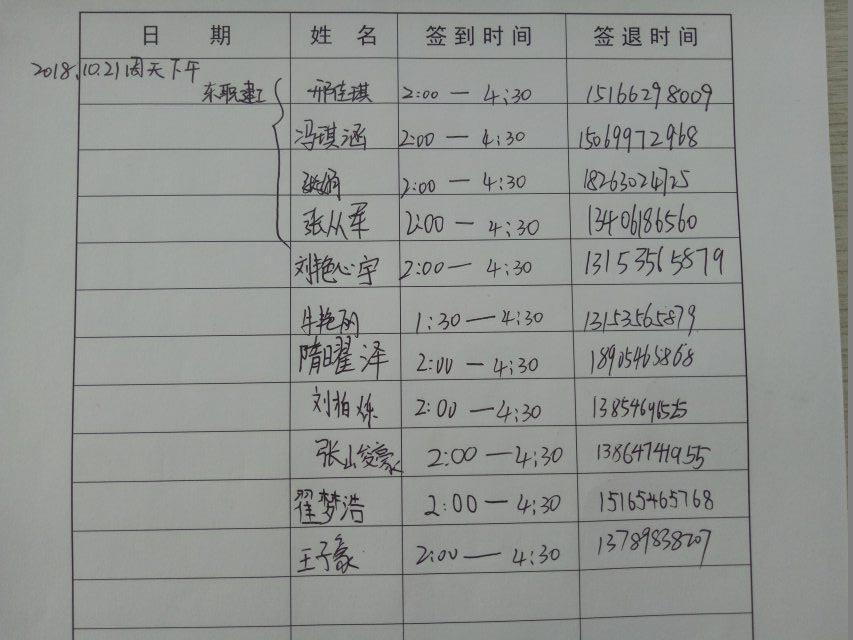 日 期 姓 名 签到时间 签退时间
2018.10.21周天下午
东职 邢佳琪 2:00 — 4:30 15166298009
冯琪涵 2:00 — 4:30 15069972968
2:00 — 4:30 18263024725
张从军 2:00 — 4:30 13406186560
刘艳心宇 2:00 — 4:30 13153565879
牛艳丽 1:30 — 4:30 13153565879
隋曜泽 2:00 — 4:30 18905465868
刘柏烁 2:00 — 4:30
张峻豪 2:00 — 4:30 13864741955
翟梦浩 2:00 — 4:30 15165465768
王子豪 2:00 — 4:30 13789838207